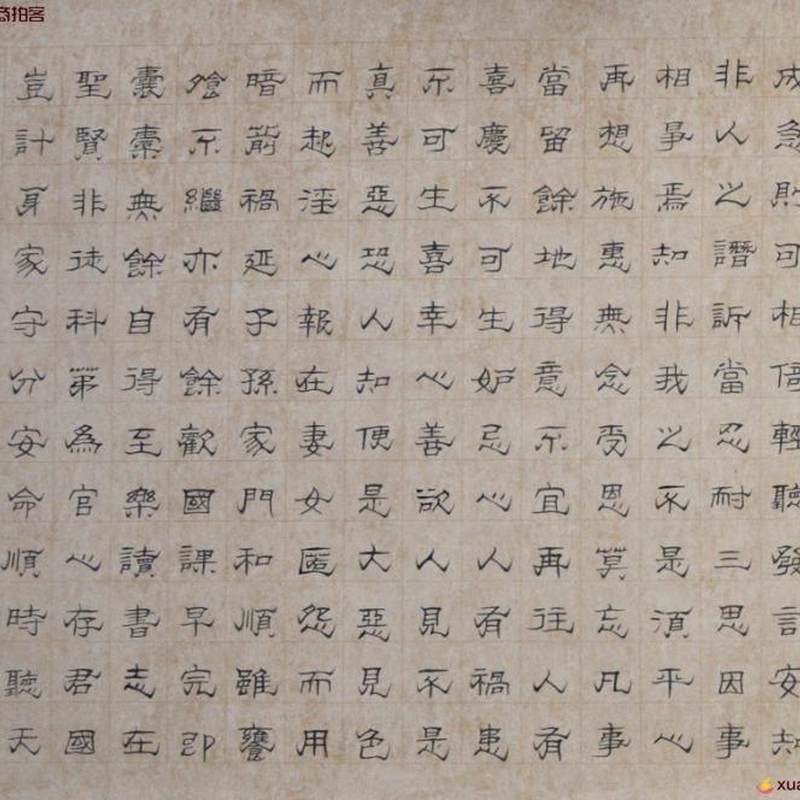 拍客
成急則可相輕聽發言安知
非人之譖訴當忍耐三思因事
相爭焉知非我之不是須平心
再想施惠無念受恩莫忘凡事
當留餘地得意不宜再往人有
喜慶不可生妒忌心人有禍患
不可生喜幸心善欲人見不是
真善惡恐人知便是大惡見色
而起淫心報在妻女匿怨而用
暗箭禍延子孫家門和順雖饔
飧不繼亦有餘歡國課早完即
囊橐無餘自得至樂讀書志在
聖賢非徒科第為官心存君國
豈計身家守分安命順時聽天
xua